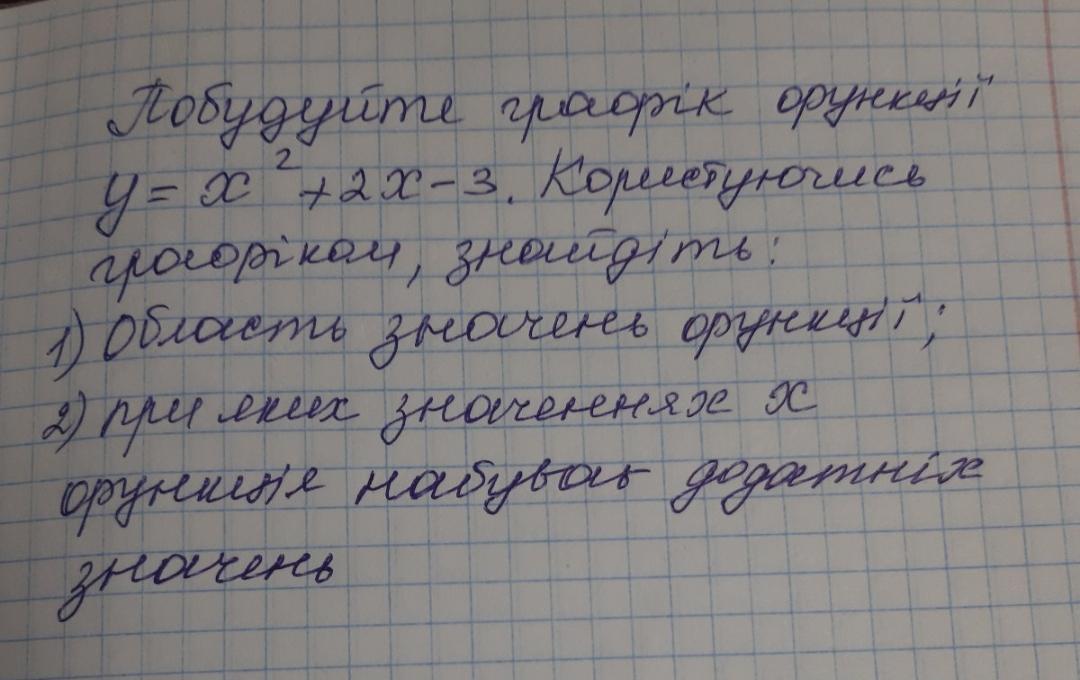 Побудуйте графік функції
y = x² + 2x - 3. Користуючись
графіком, знайдіть:
1) Область значень функції;
2) при яких значеннях x
функція набуває додатніх
значень